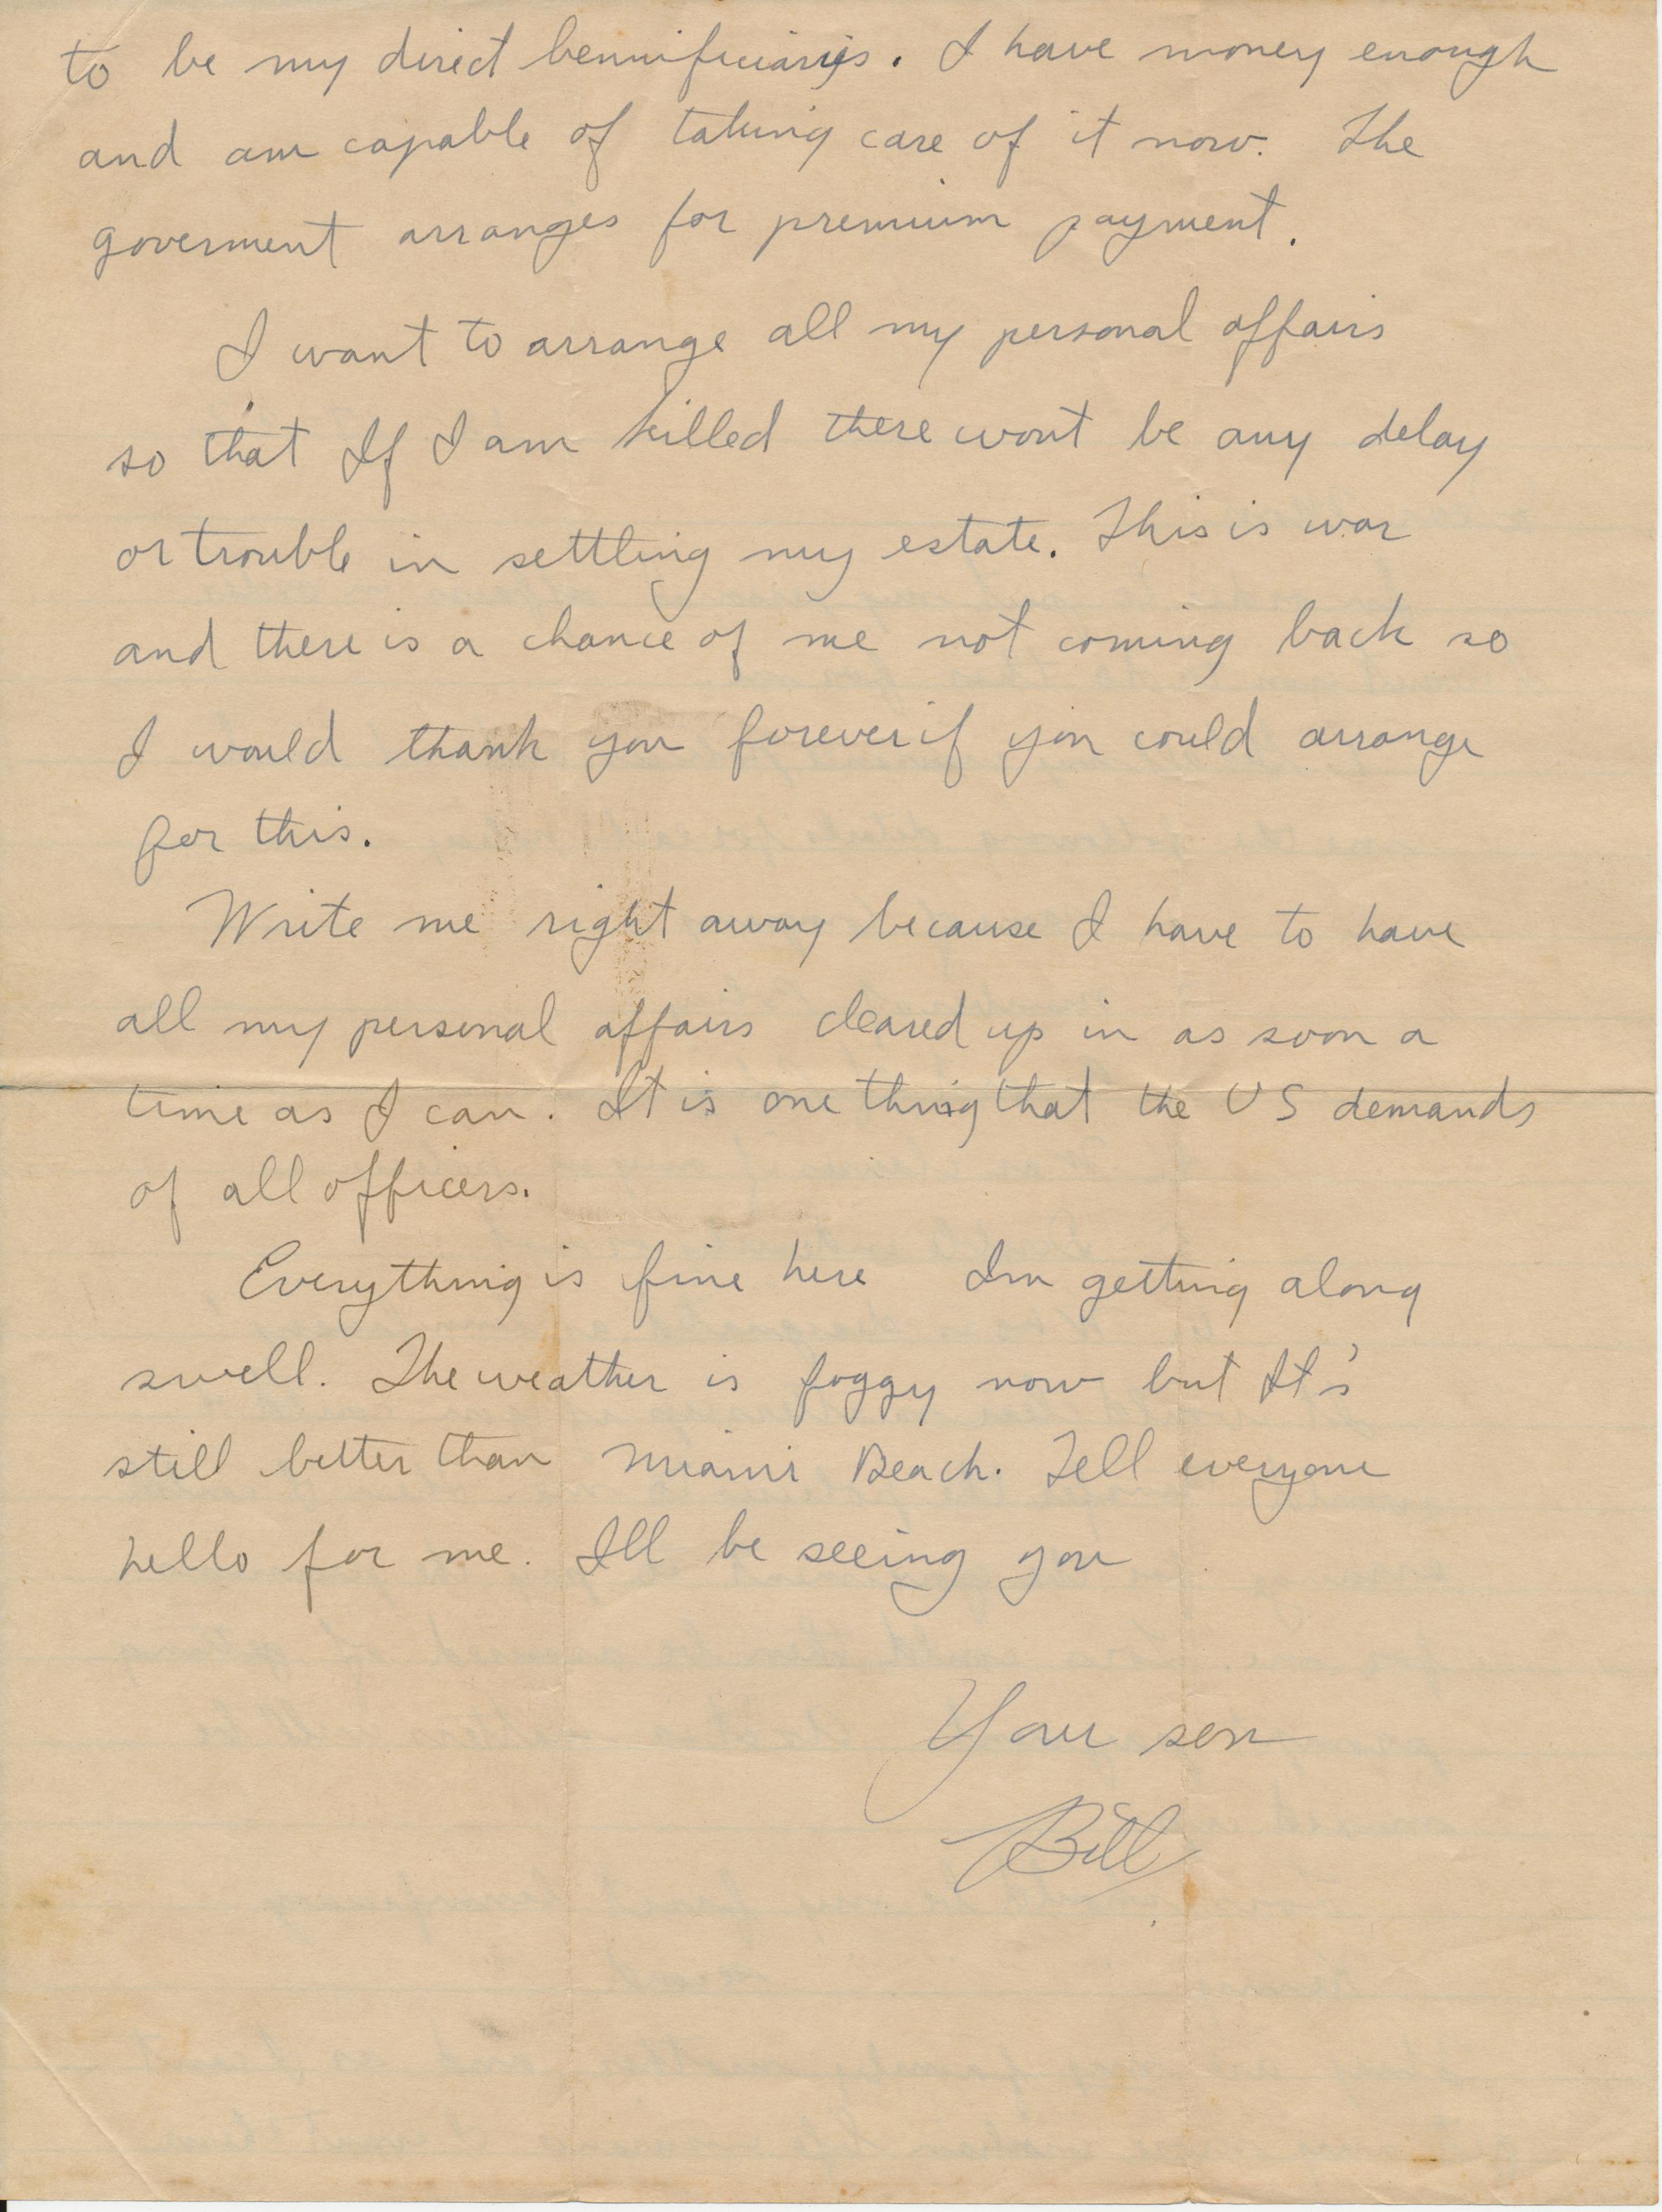 to be my direct bennificiaries. I have money enough
and am capable of taking care of it now. The
goverment arranges for premium payment.
I want to arrange all my personal affairs
so that If I am killed there wont be any delay
or trouble in settling my estate. This is war
and there is a chance of me not coming back so
I would thank you forever if you could arrange
for this.
Write me right away because I have to have
all my personal affairs cleared up in as soon a
time as I can. It is one thing that the US demands
of all officers.
Everything is fine here Im getting along
swell. The weather is foggy now but It's
still better than Miami Beach. Tell everyone
hello for me. Ill be seeing you
Your son
Bill